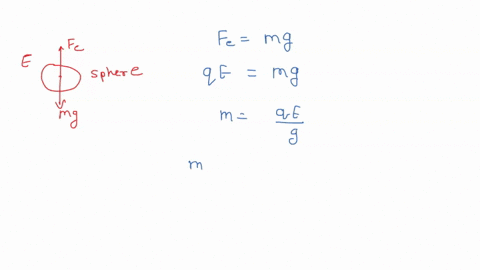 Fe
E
sphere
mg
Fe = mg
qE = mg
m = qE / g
m